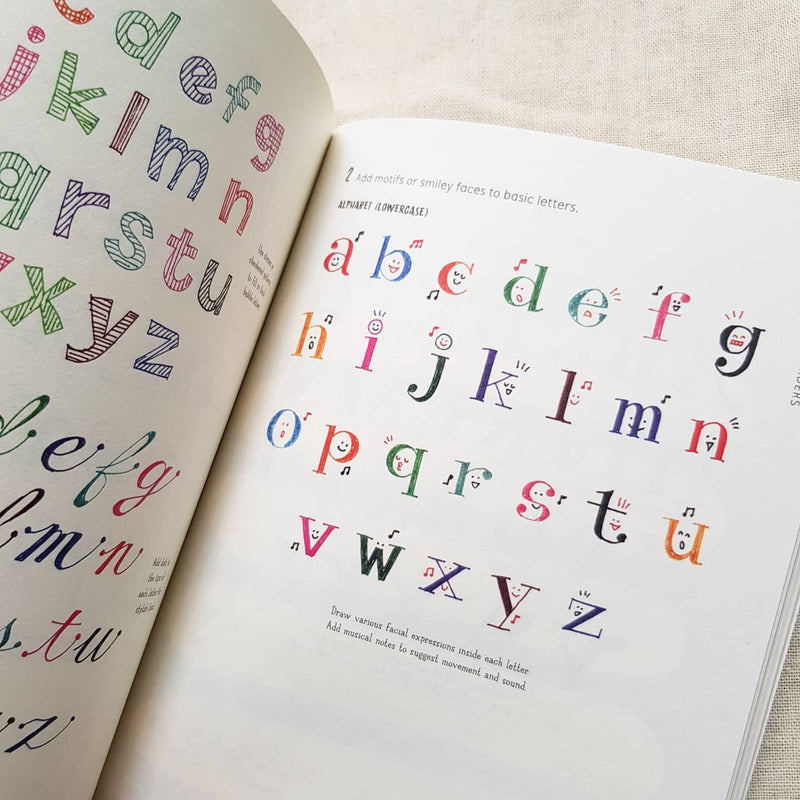 c d e f g
j k l m n
q r s t u
x y z
d e f g
l m n
s t u
y z
Use stripes or
checkered pattern
to fill in each
bubble letter.
Add dots to
the tips of
each letter for
stylish text.
2 Add motifs or smiley faces to basic letters.
ALPHABET (LOWERCASE)
a b c d e f g
h i j k l m n
o p q r s t u
v w x y z
Draw various facial expressions inside each letter.
Add musical notes to suggest movement and sound.